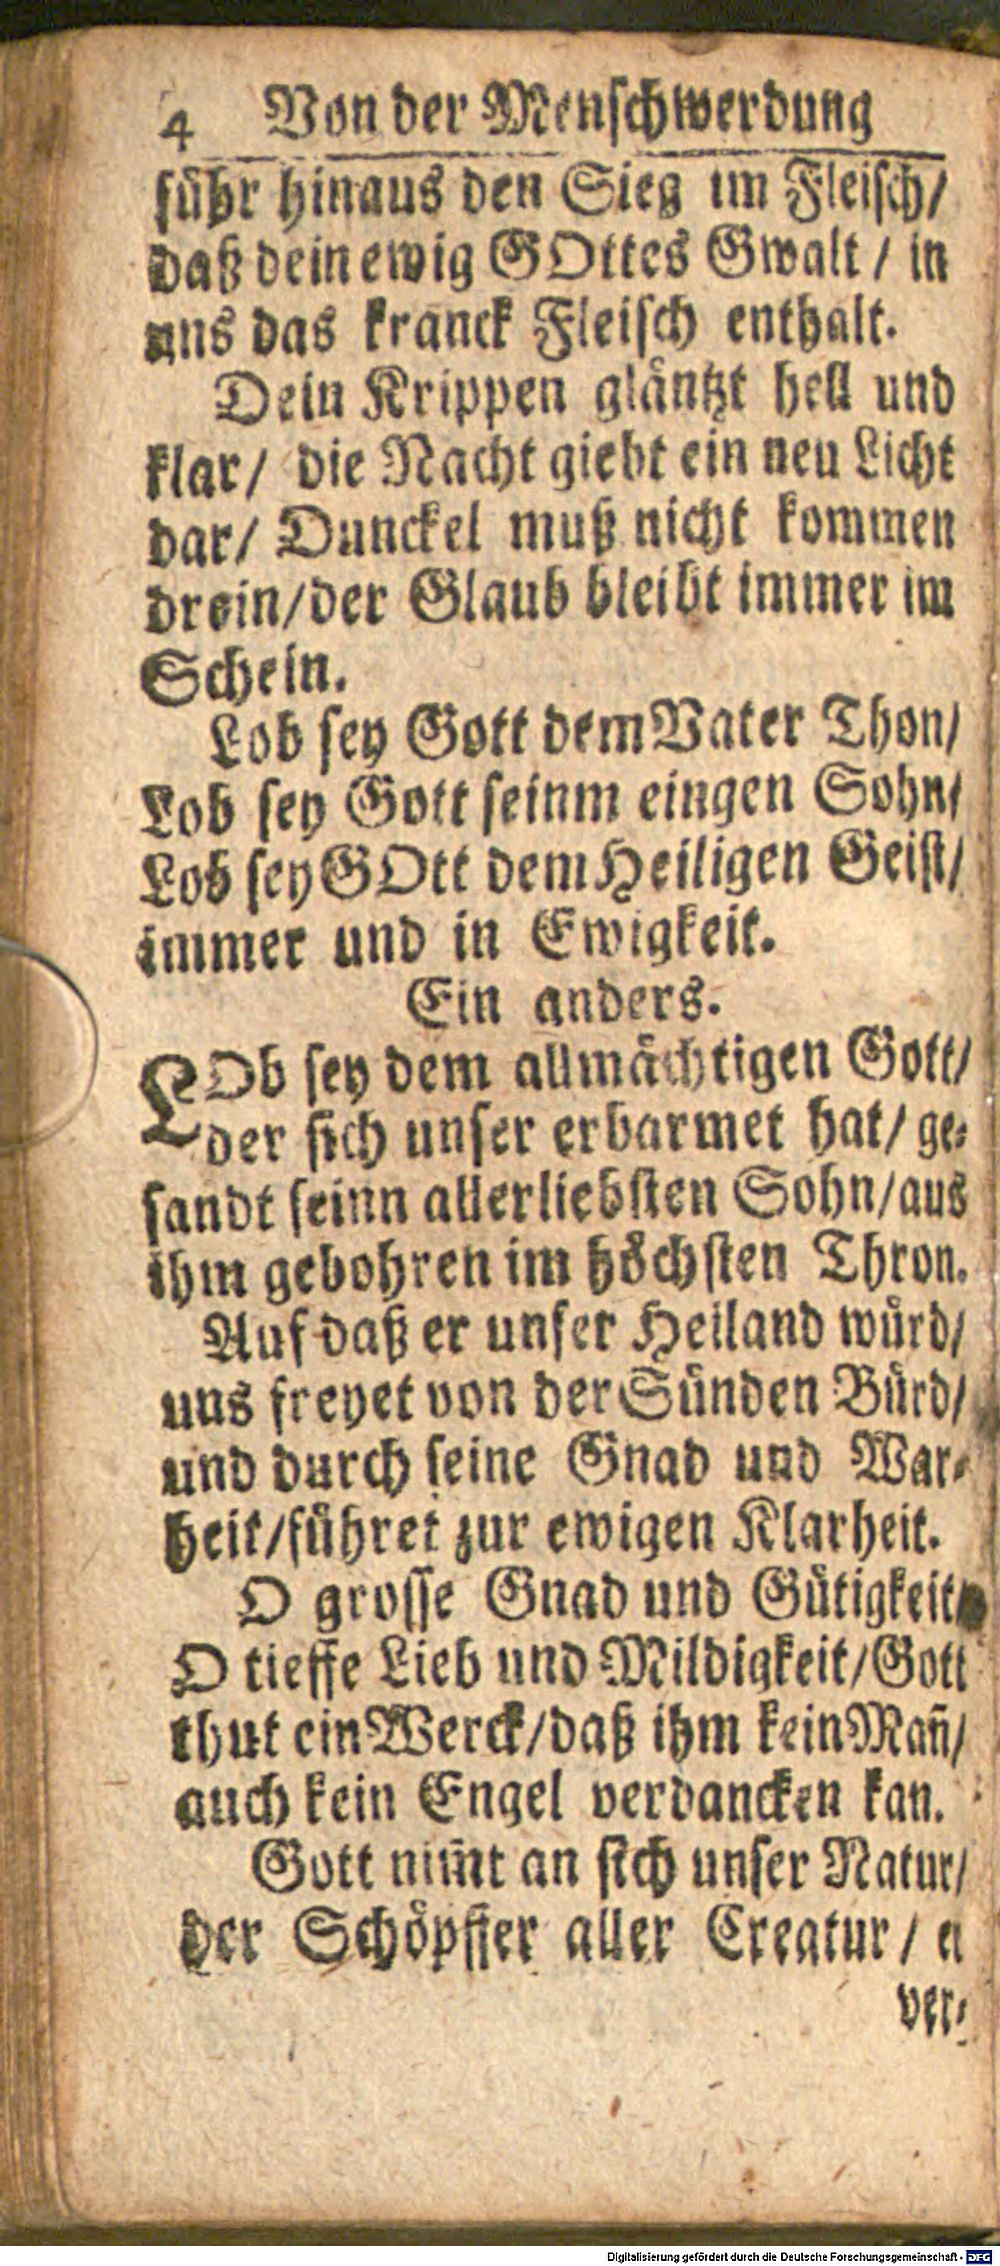 4 Von der Menschwerdung
führ hinaus den Sieg im Fleisch/
daß dein ewig GOttes Gwalt / in
uns das kranck Fleisch enthalt.
Dein Krippen gläntzt hell und
klar/ die Nacht giebt ein neu Licht
dar/ Dunckel muß nicht kommen
drein/der Glaub bleibt immer im
Schein.
Lob sey Gott dem Vater Thon/
Lob sey Gott seinm eingen Sohn/
Lob sey GOtt dem Heiligen Geist/
immer und in Ewigkeit.
Ein anders.
LOb sey dem allmächtigen Gott/
der sich unser erbarmet hat/ ge-
sandt seinn allerliebsten Sohn/aus
ihm gebohren im höchsten Thron.
Auf daß er unser Heiland würd/
uns freyet von der Sünden Bürd/
und durch seine Gnad und War-
heit/führet zur ewigen Klarheit.
O grosse Gnad und Gütigkeit/
O tieffe Lieb und Mildigkeit/Gott
thut ein Werck/daß ihm kein Mañ/
auch kein Engel verdancken kan.
Gott nim̃t an sich unser Natur/
der Schöpffer aller Creatur / er
ver-
Digitalisierung gefördert durch die Deutsche Forschungsgemeinschaft - DFG